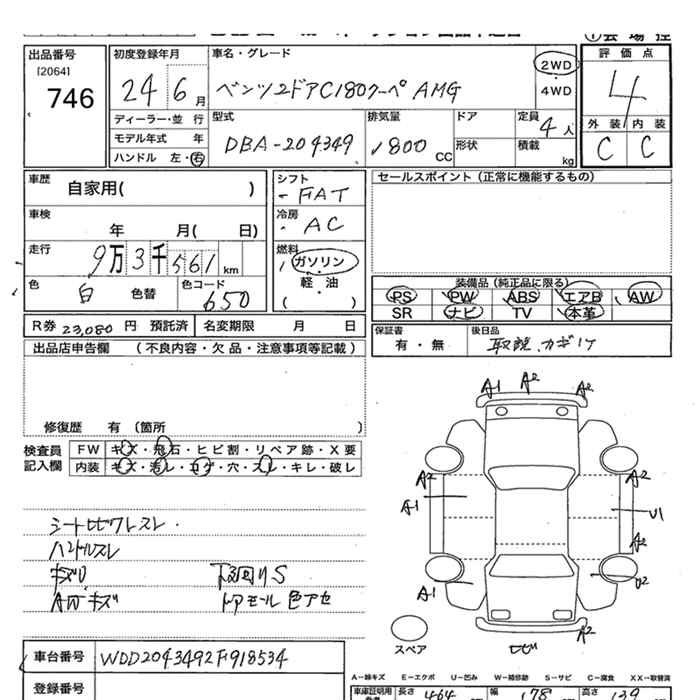 出品番号
[2064]
746
初度登録年月
24 6 月
ディーラー・並 行
モデル年式 年
ハンドル 左・右
車名・グレード
ベンツ 2ドア C180クーペ AMG
2WD
4WD
型式
DBA-204349
排気量
1800 CC
ドア
形状
定員 4 人
積載 kg
評価点
4
外装 内装
C C
車歴
自家用( )
車検
年 月( 日)
走行
9万3千561 km
色
白 色替
色コード
650
シフト
FAT
冷房
AC
燃料
ガソリン
軽・油
( )
セールスポイント (正常に機能するもの)
装備品 (純正品に限る)
PS PW ABS エアB AW
SR ナビ TV 本革
R券 23,080 円 預託済 名変期限 月 日
保証書
有・無
後日品
取説、カギ1ケ
出品店申告欄 (不良内容・欠品・注意事項等記載)
修復歴 有 (箇所 )
検査員
記入欄
FW キズ・飛石・ヒビ割・リペア跡・X要
内装 キズ・汚レ・コゲ・穴・スレ・キレ・破レ
シートヒビワレスレ
ハンドルスレ
キズU 下回りS
AWキズ ドアモール色アセ
A1 A2 A2
A2 A2
A1 U1
A2
A1 U2
A2
スペア
ヒビ
車台番号 WDD2043492F918534
登録番号
A−線キズ E−エクボ U−凹み W−補修跡 S−サビ C−腐食 XX−取替済
車庫証明用 長さ 464 幅 178 高さ 139